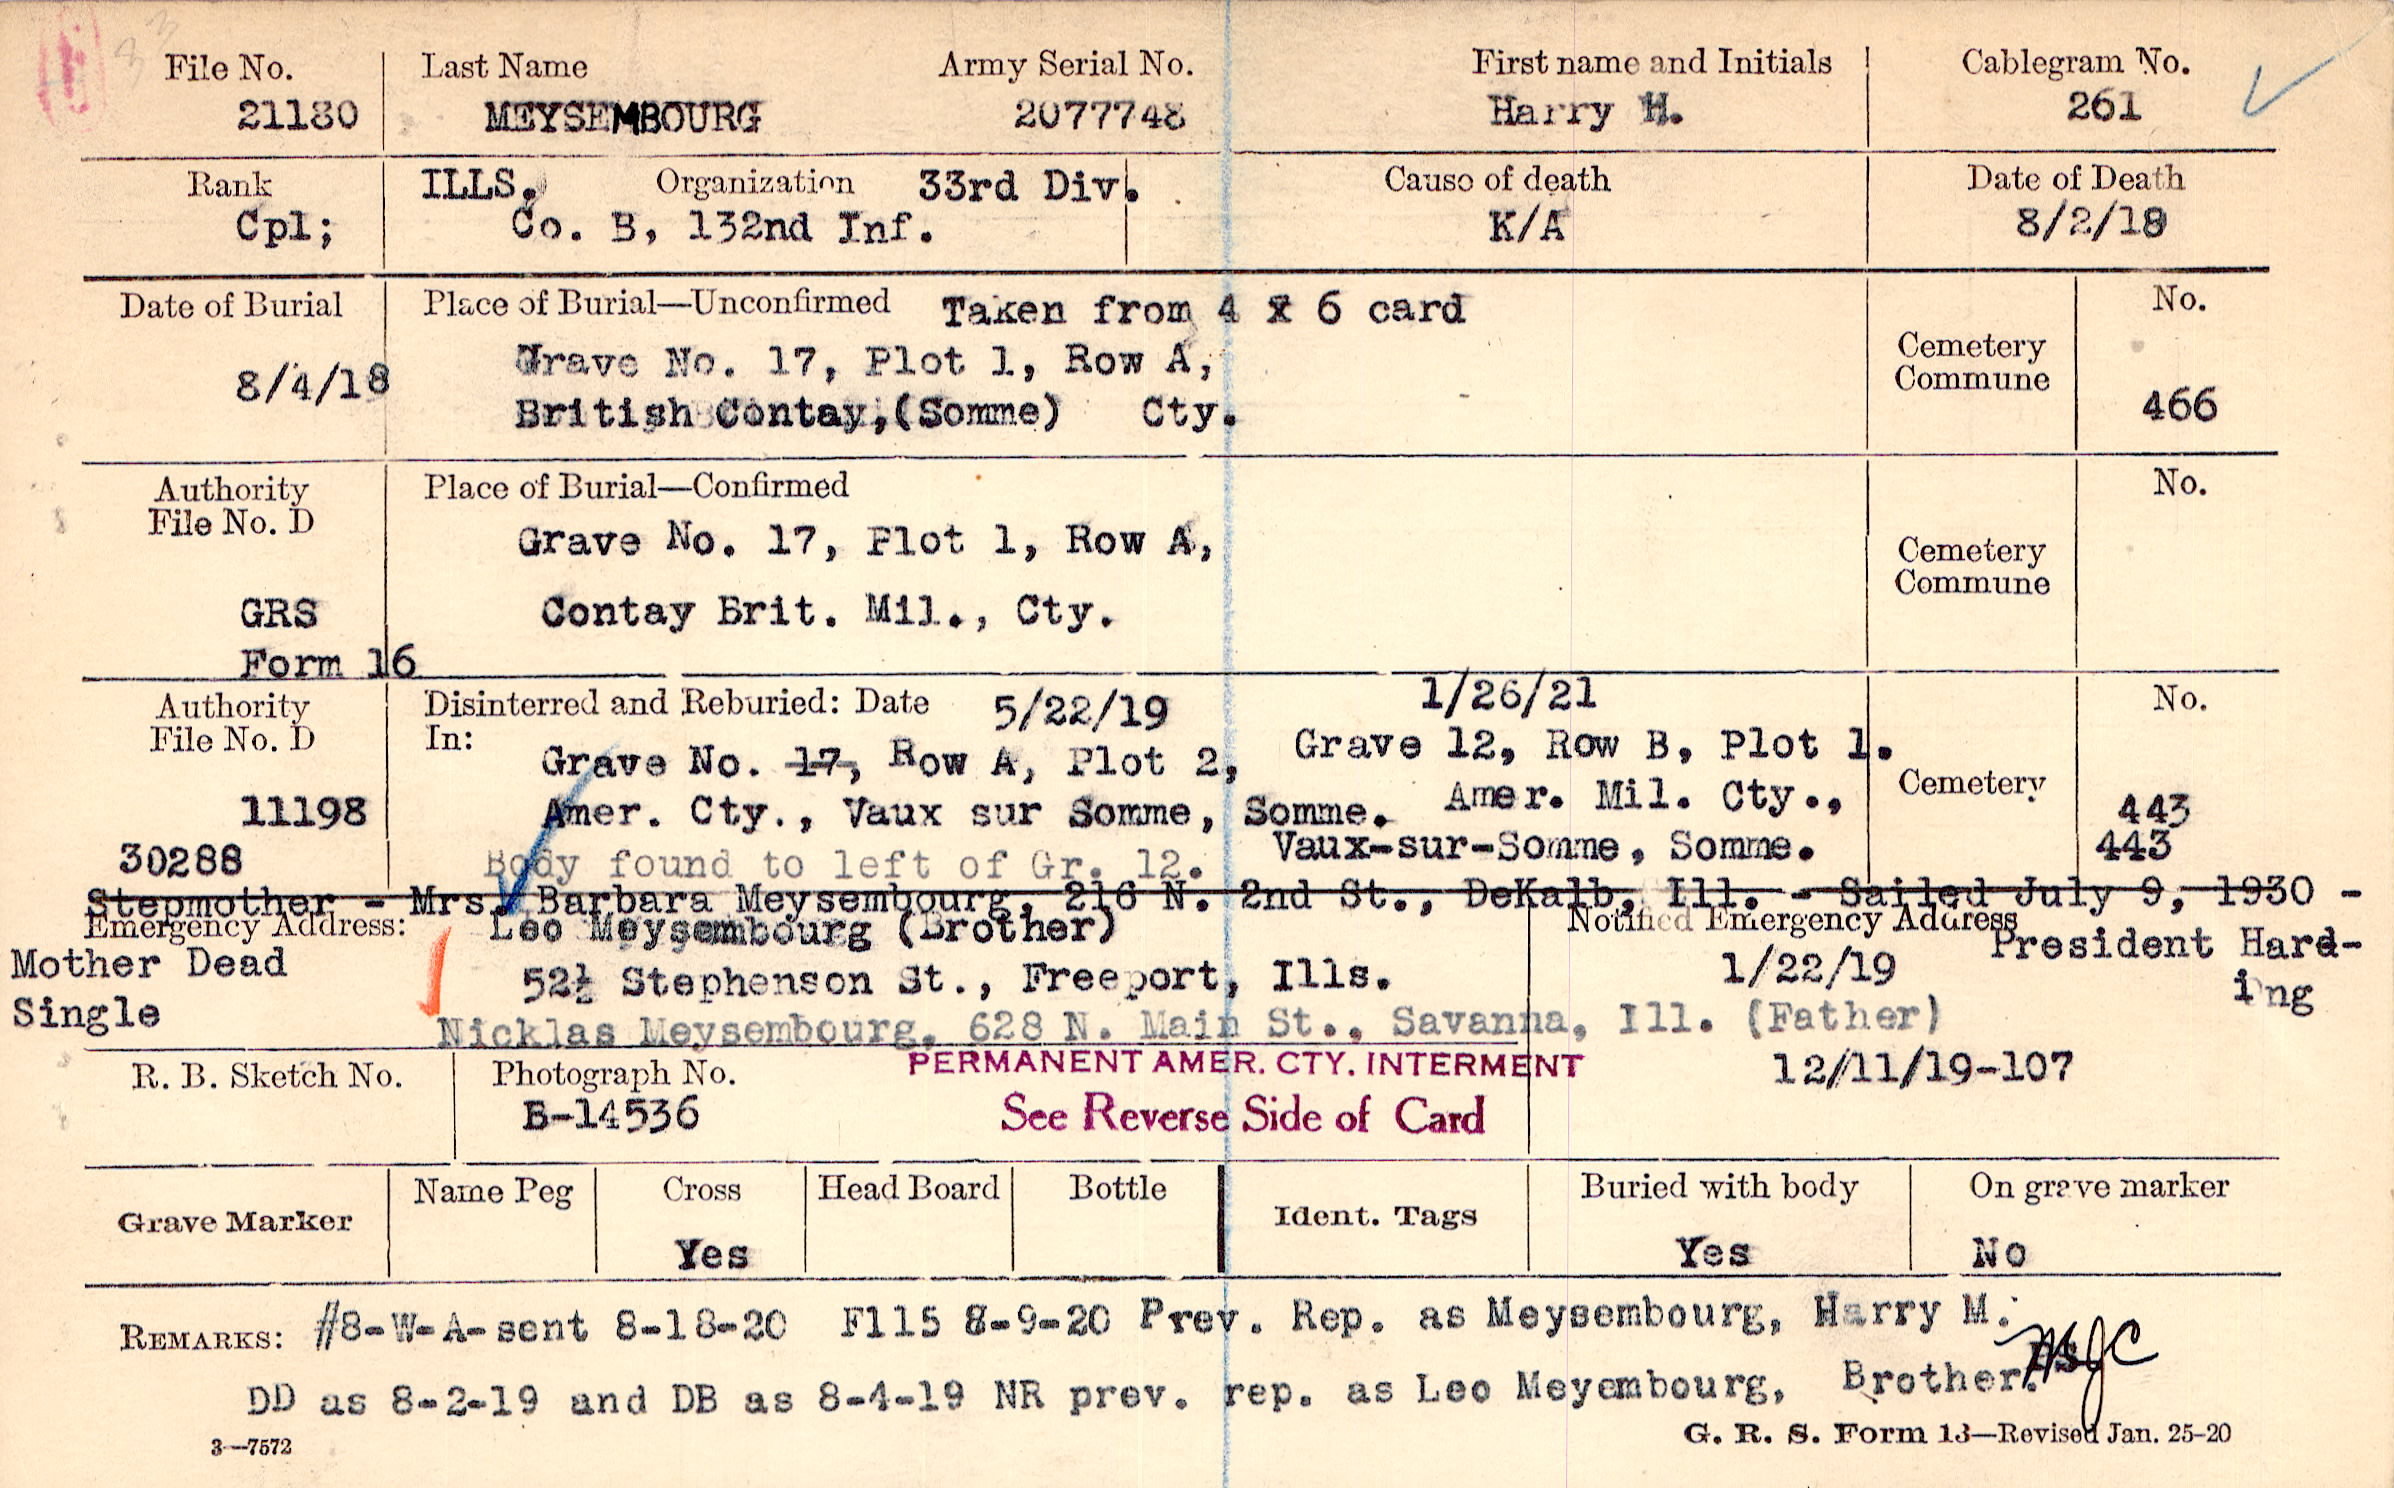 File No. Last Name Army Serial No. First name and Initials Cablegram No.
21180 MEYSEMBOURG 2077748 Harry H. 261
Rank ILLS. Organization 33rd Div. Cause of death Date of Death
Cpl; Co. B, 132nd Inf. K/A 8/2/18
Date of Burial Place of Burial—Unconfirmed Taken from 4 x 6 card No.
Grave No. 17, Plot 1, Row A, Cemetery
Commune
8/4/18 British Contay,(Somme) Cty. 466
Authority Place of Burial—Confirmed No.
File No. D
Grave No. 17, Plot 1, Row A, Cemetery
Commune
GRS Contay Brit. Mil., Cty.
Form 16
Authority Disinterred and Reburied: Date 5/22/19 1/26/21 No.
File No. D In:
Grave No. 17, Row A, Plot 2, Grave 12, Row B, Plot 1. Cemetery
11198 Amer. Cty., Vaux sur Somme, Somme. Amer. Mil. Cty., 443
30288 Body found to left of Gr. 12. Vaux-sur-Somme, Somme. 443
Stepmother - Mrs. Barbara Meysembourg, 216 N. 2nd St., DeKalb, Ill. - Sailed July 9, 1930 -
Emergency Address: Leo Meysembourg (Brother) Notified Emergency Address
President Hard-
ing
Mother Dead 52½ Stephenson St., Freeport, Ills. 1/22/19
Single
Nicklas Meysembourg, 628 N. Main St., Savanna, Ill. (Father)
R. B. Sketch No. Photograph No. PERMANENT AMER. CTY. INTERMENT 12/11/19-107
B-14536 See Reverse Side of Card
Grave Marker Name Peg Cross Head Board Bottle Ident. Tags Buried with body On grave marker
Yes Yes No
REMARKS: #8-W-A-sent 8-18-20 F115 8-9-20 Prev. Rep. as Meysembourg, Harry M.
DD as 8-2-19 and DB as 8-4-19 NR prev. rep. as Leo Meyembourg, Brother.
3—7572 G. R. S. Form 13—Revised Jan. 25-20